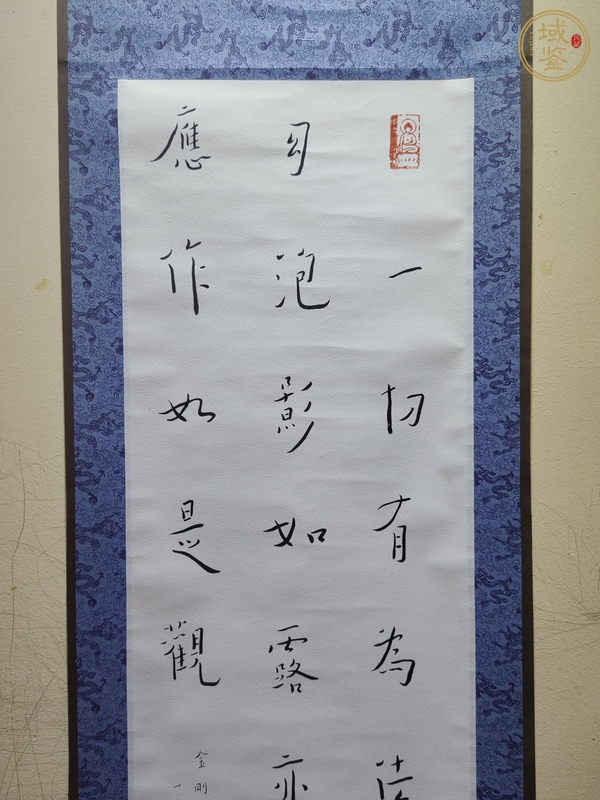 一切有為
幻泡影如露亦
應作如是觀
金剛
一
域鉴